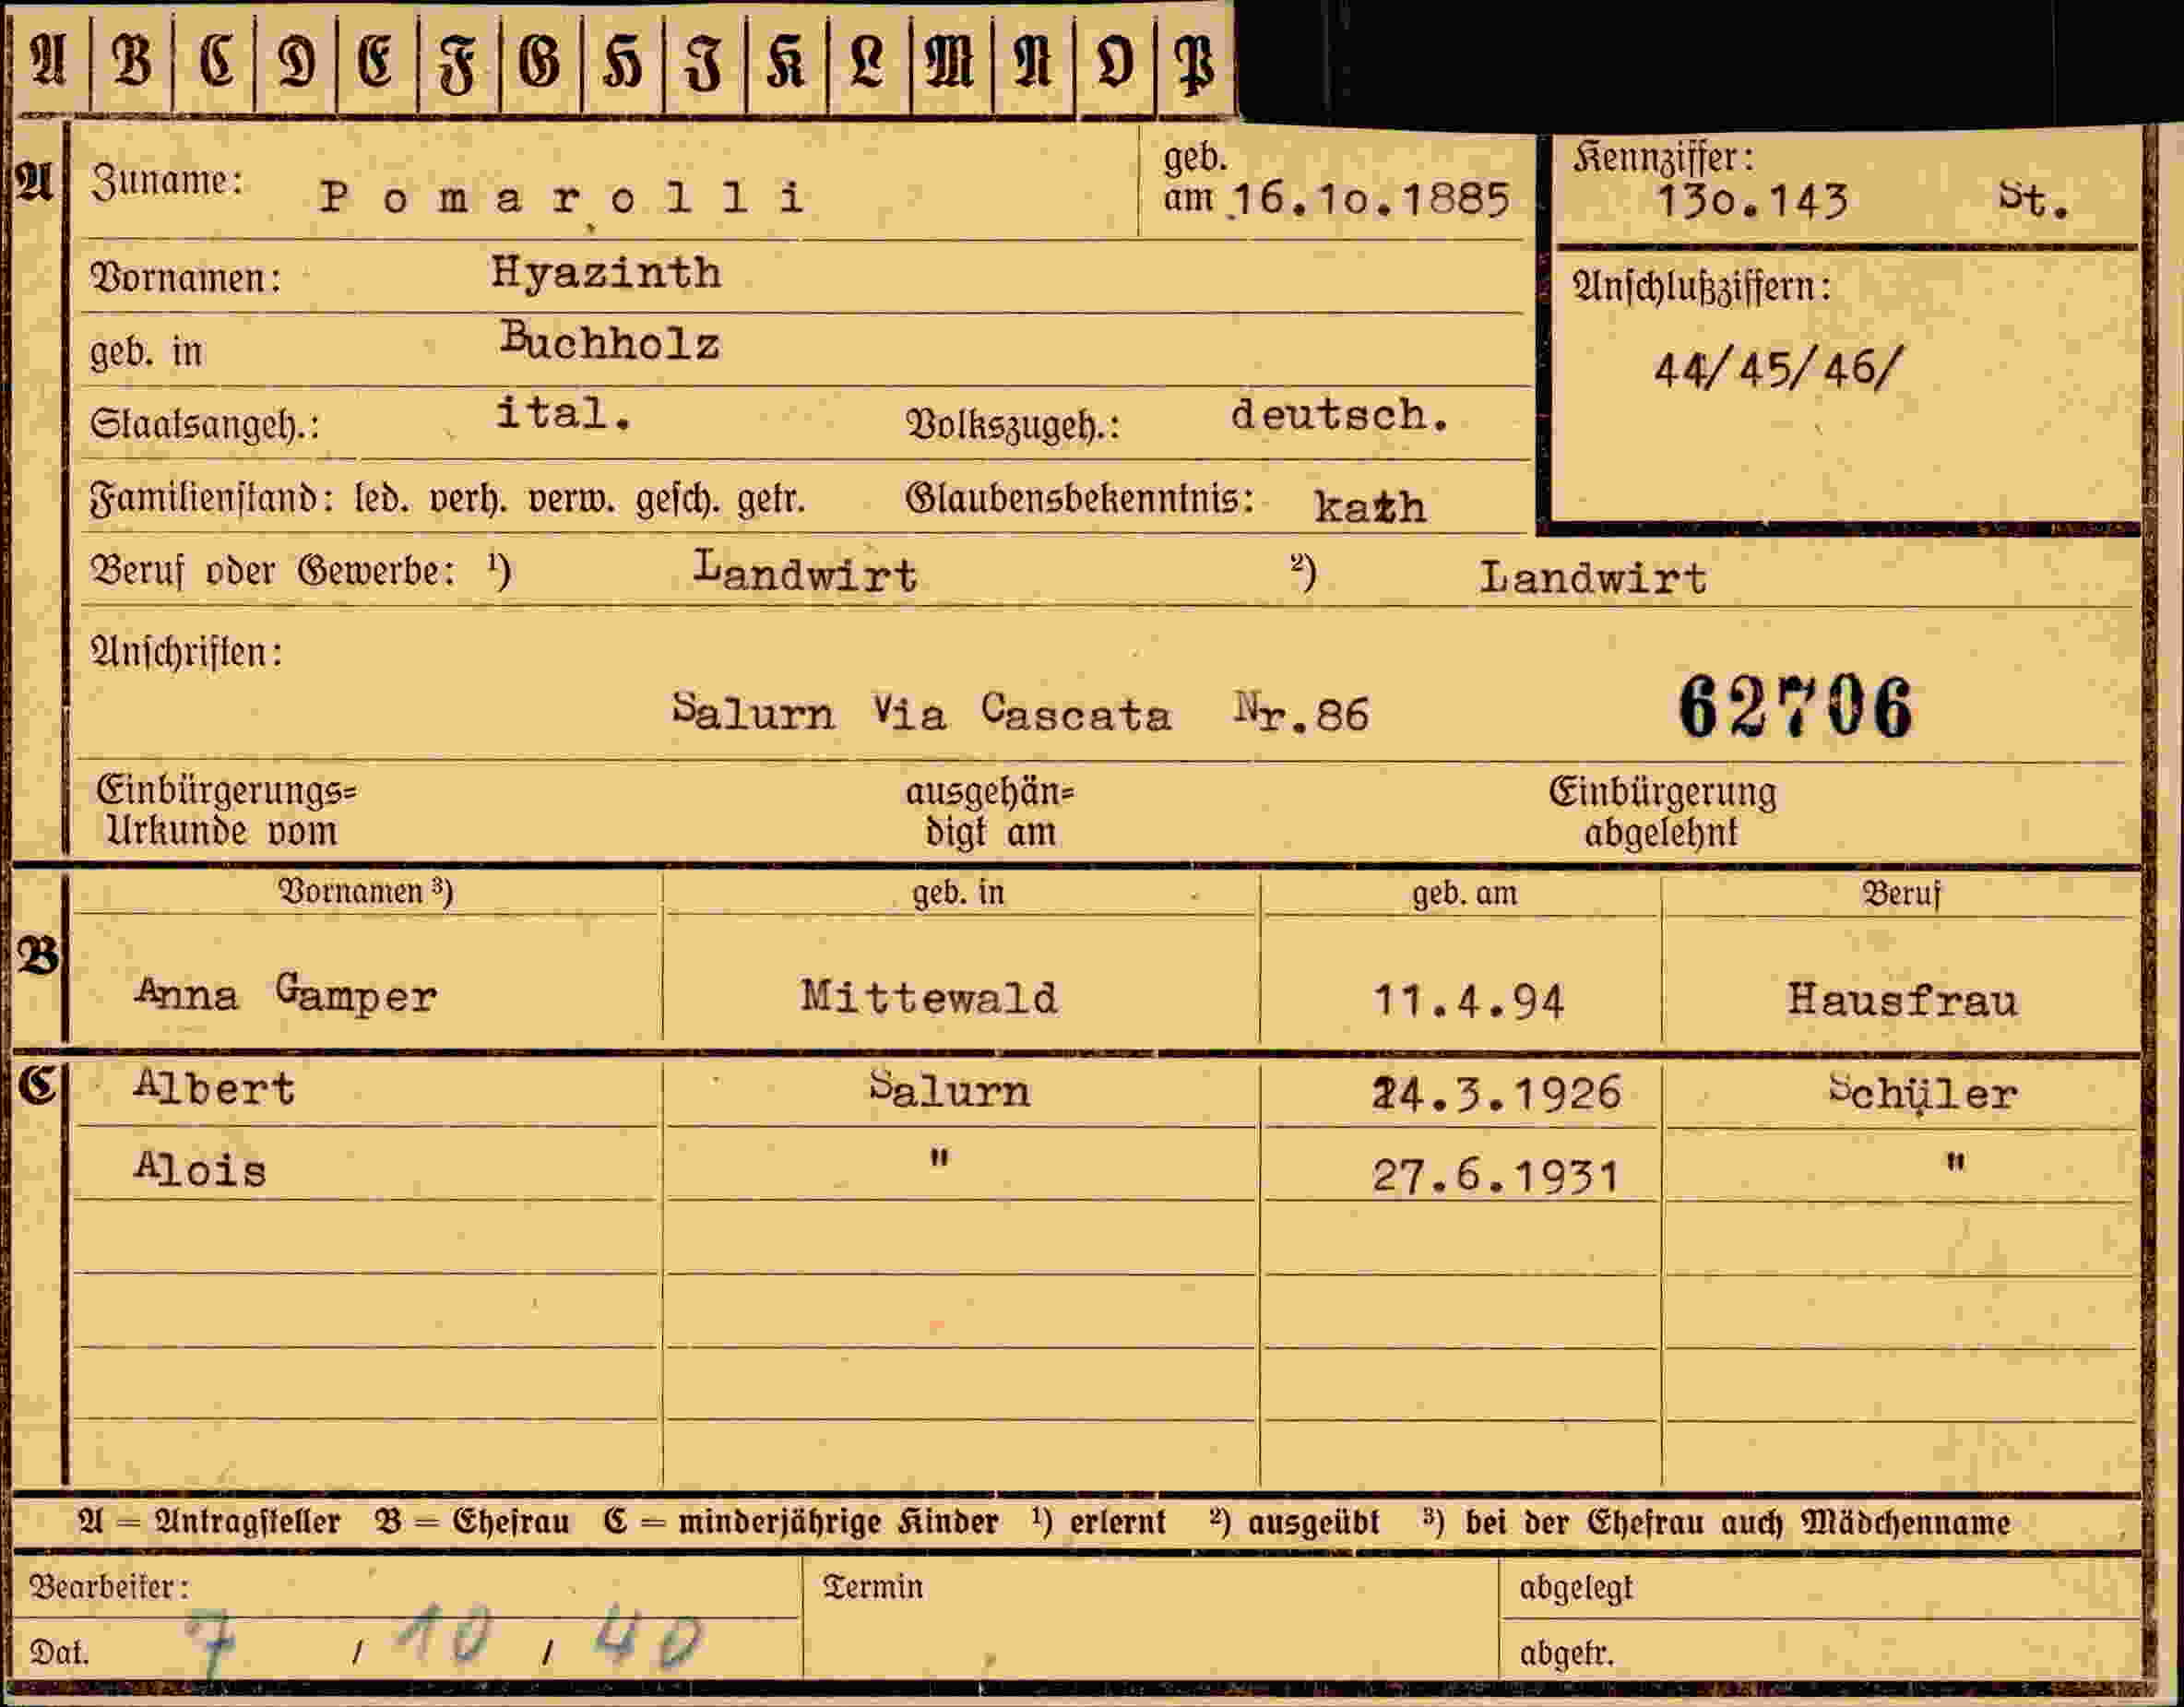 A B C D E F G H I K L M N O P
A Zuname: Pomarolli geb. am 16.10.1885 Kennziffer: 130.143 St.
Vornamen: Hyazinth Anschlußziffern:
geb. in Buchholz 44/45/46/
Staatsangeh.: ital. Volkszugeh.: deutsch.
Familienstand: led. verh. verw. gesch. getr. Glaubensbekenntnis: kath
Beruf oder Gewerbe: ¹) Landwirt ²) Landwirt
Anschriften:
Salurn Via Cascata Nr.86 62706
Einbürgerungs= ausgehän= Einbürgerung
Urkunde vom digt am abgelehnt
Vornamen ³) geb. in geb. am Beruf
B Anna Gamper Mittewald 11.4.94 Hausfrau
C Albert Salurn 24.3.1926 Schüler
Alois " 27.6.1931 "
A = Antragsteller B = Ehefrau C = minderjährige Kinder ¹) erlernt ²) ausgeübt ³) bei der Ehefrau auch Mädchenname
Bearbeiter: Termin abgelegt
Dat. 7 / 10 / 40 abgetr.